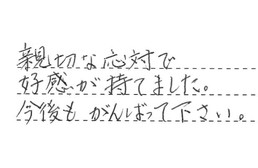 親切な応対で
好感が持てました。
今後もがんばって下さい。